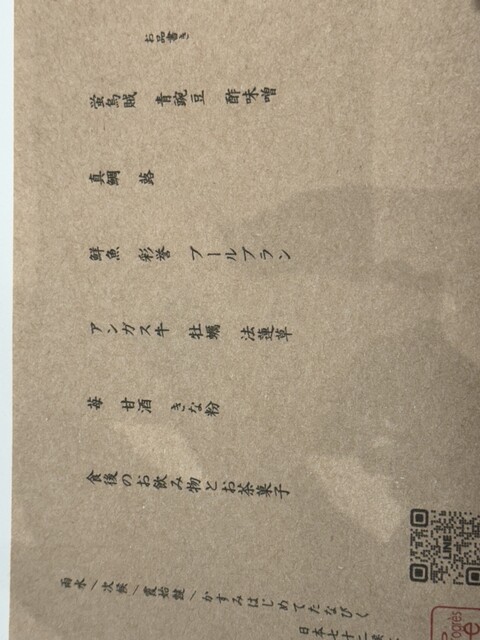 お品書き
蛍烏賊 青豌豆 酢味噌
真鯛 蕗
鮮魚 彩誉 ブールブラン
アンガス牛 牡蠣 法蓮草
苺 甘酒 きな粉
食後のお飲み物とお茶菓子
雨水/次候/霞始靆/かすみはじめてたなびく
日本七十二候
LINE